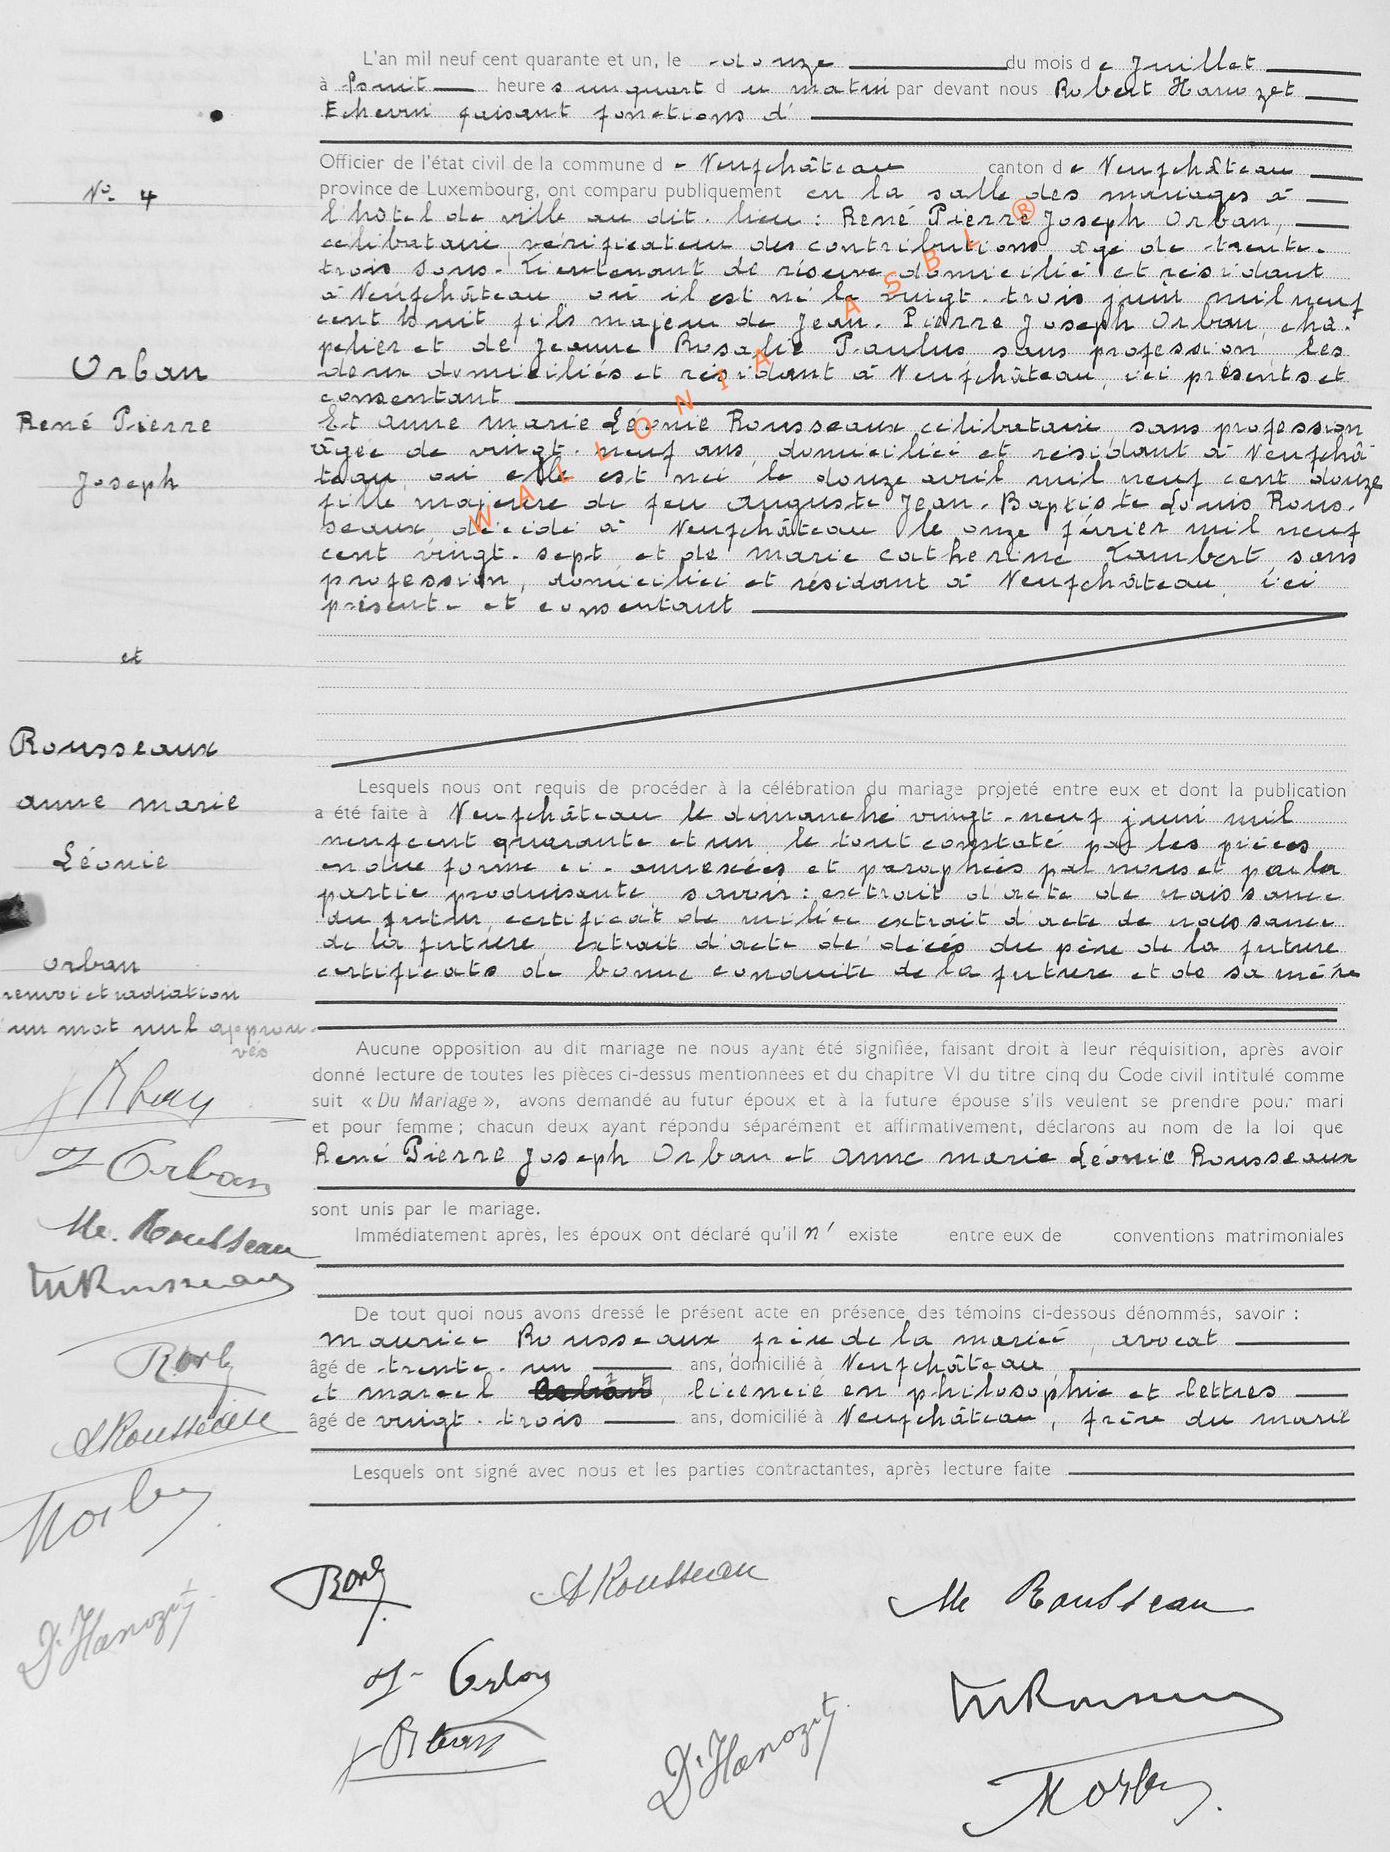 L'an mil neuf cent quarante et un, le onze du mois de Juillet
à huit heures un quart du matin par devant nous Robert Hanozet
Echevin faisant fonctions d'
Officier de l'état civil de la commune de Neufchâteau canton de Neufchâteau
N° 4
province de Luxembourg, ont comparu publiquement en la salle des mariages à
l'hôtel de ville au dit-lieu : René Pierre Joseph Orban,
célibataire, vérificateur des contributions âgé de trente-
trois sans, lieutenant de réserve domicilié et résidant
à Neufchâteau, où il est né le vingt-trois juin mil neuf
cent huit fils majeur de Jean-Pierre Joseph Orban, cha-
pelier et de Jeanne Rosalie Paulus sans profession, les
deux domiciliés et résidant à Neufchâteau, ici présents et
consentant
Orban
René Pierre
Joseph
Et anne marie Léonie Rousseaux célibataire, sans profession
âgée de vingt-neuf ans, domiciliée et résidant à Neufchâ-
teau, où elle est née le douze avril mil neuf cent douze
fille majeure de feu auguste Jean-Baptiste Louis Rous-
seaux, décédé à Neufchâteau le onze février mil neuf
cent vingt-sept et de marie catherine Lambert sans
profession, domiciliée et résidant à Neufchâteau, ici
présente et consentant
et
Rousseaux
anne marie
Léonie
Lesquels nous ont requis de procéder à la célébration du mariage projeté entre eux et dont la publication
a été faite à Neufchâteau le dimanche vingt-neuf juin mil
neuf cent quarante et un, le tout constaté par les pièces
en due forme ci-annexées et paraphées par nous et par la
partie produisante, savoir : extrait d'acte de naissance
du futur, certificat de milice extrait d'acte de naissance
de la future extrait d'acte de décès du père de la future
certificats de bonne conduite de la future et de sa mère
orban
renvoi et radiation
un mot nul approu-
vés
Aucune opposition au dit mariage ne nous ayant été signifiée, faisant droit à leur réquisition, après avoir
donné lecture de toutes les pièces ci-dessus mentionnées et du chapitre VI du titre cinq du Code civil intitulé comme
suit « Du Mariage », avons demandé au futur époux et à la future épouse s'ils veulent se prendre pour mari
et pour femme ; chacun deux ayant répondu séparément et affirmativement, déclarons au nom de la loi que
René Pierre Joseph Orban et anne marie Léonie Rousseaux
sont unis par le mariage.
Immédiatement après, les époux ont déclaré qu'il n' existe entre eux de conventions matrimoniales
De tout quoi nous avons dressé le présent acte en présence des témoins ci-dessous dénommés, savoir :
maurice Rousseaux, frère de la mariée, avocat
âgé de trente-un ans, domicilié à Neufchâteau
et marcel licencié en philosophie et lettres
âgé de vingt-trois ans, domicilié à Neufchâteau, frère du marié
Lesquels ont signé avec nous et les parties contractantes, après lecture faite
J Orban
Me. Rousseau
MRousseaux
A Rousseau
MOrban
Dr Hanozet
A Rousseau
Me Rousseau
J- Orban
MRousseaux
Dr Hanozet
MOrban
WALLONIA ASBL ®